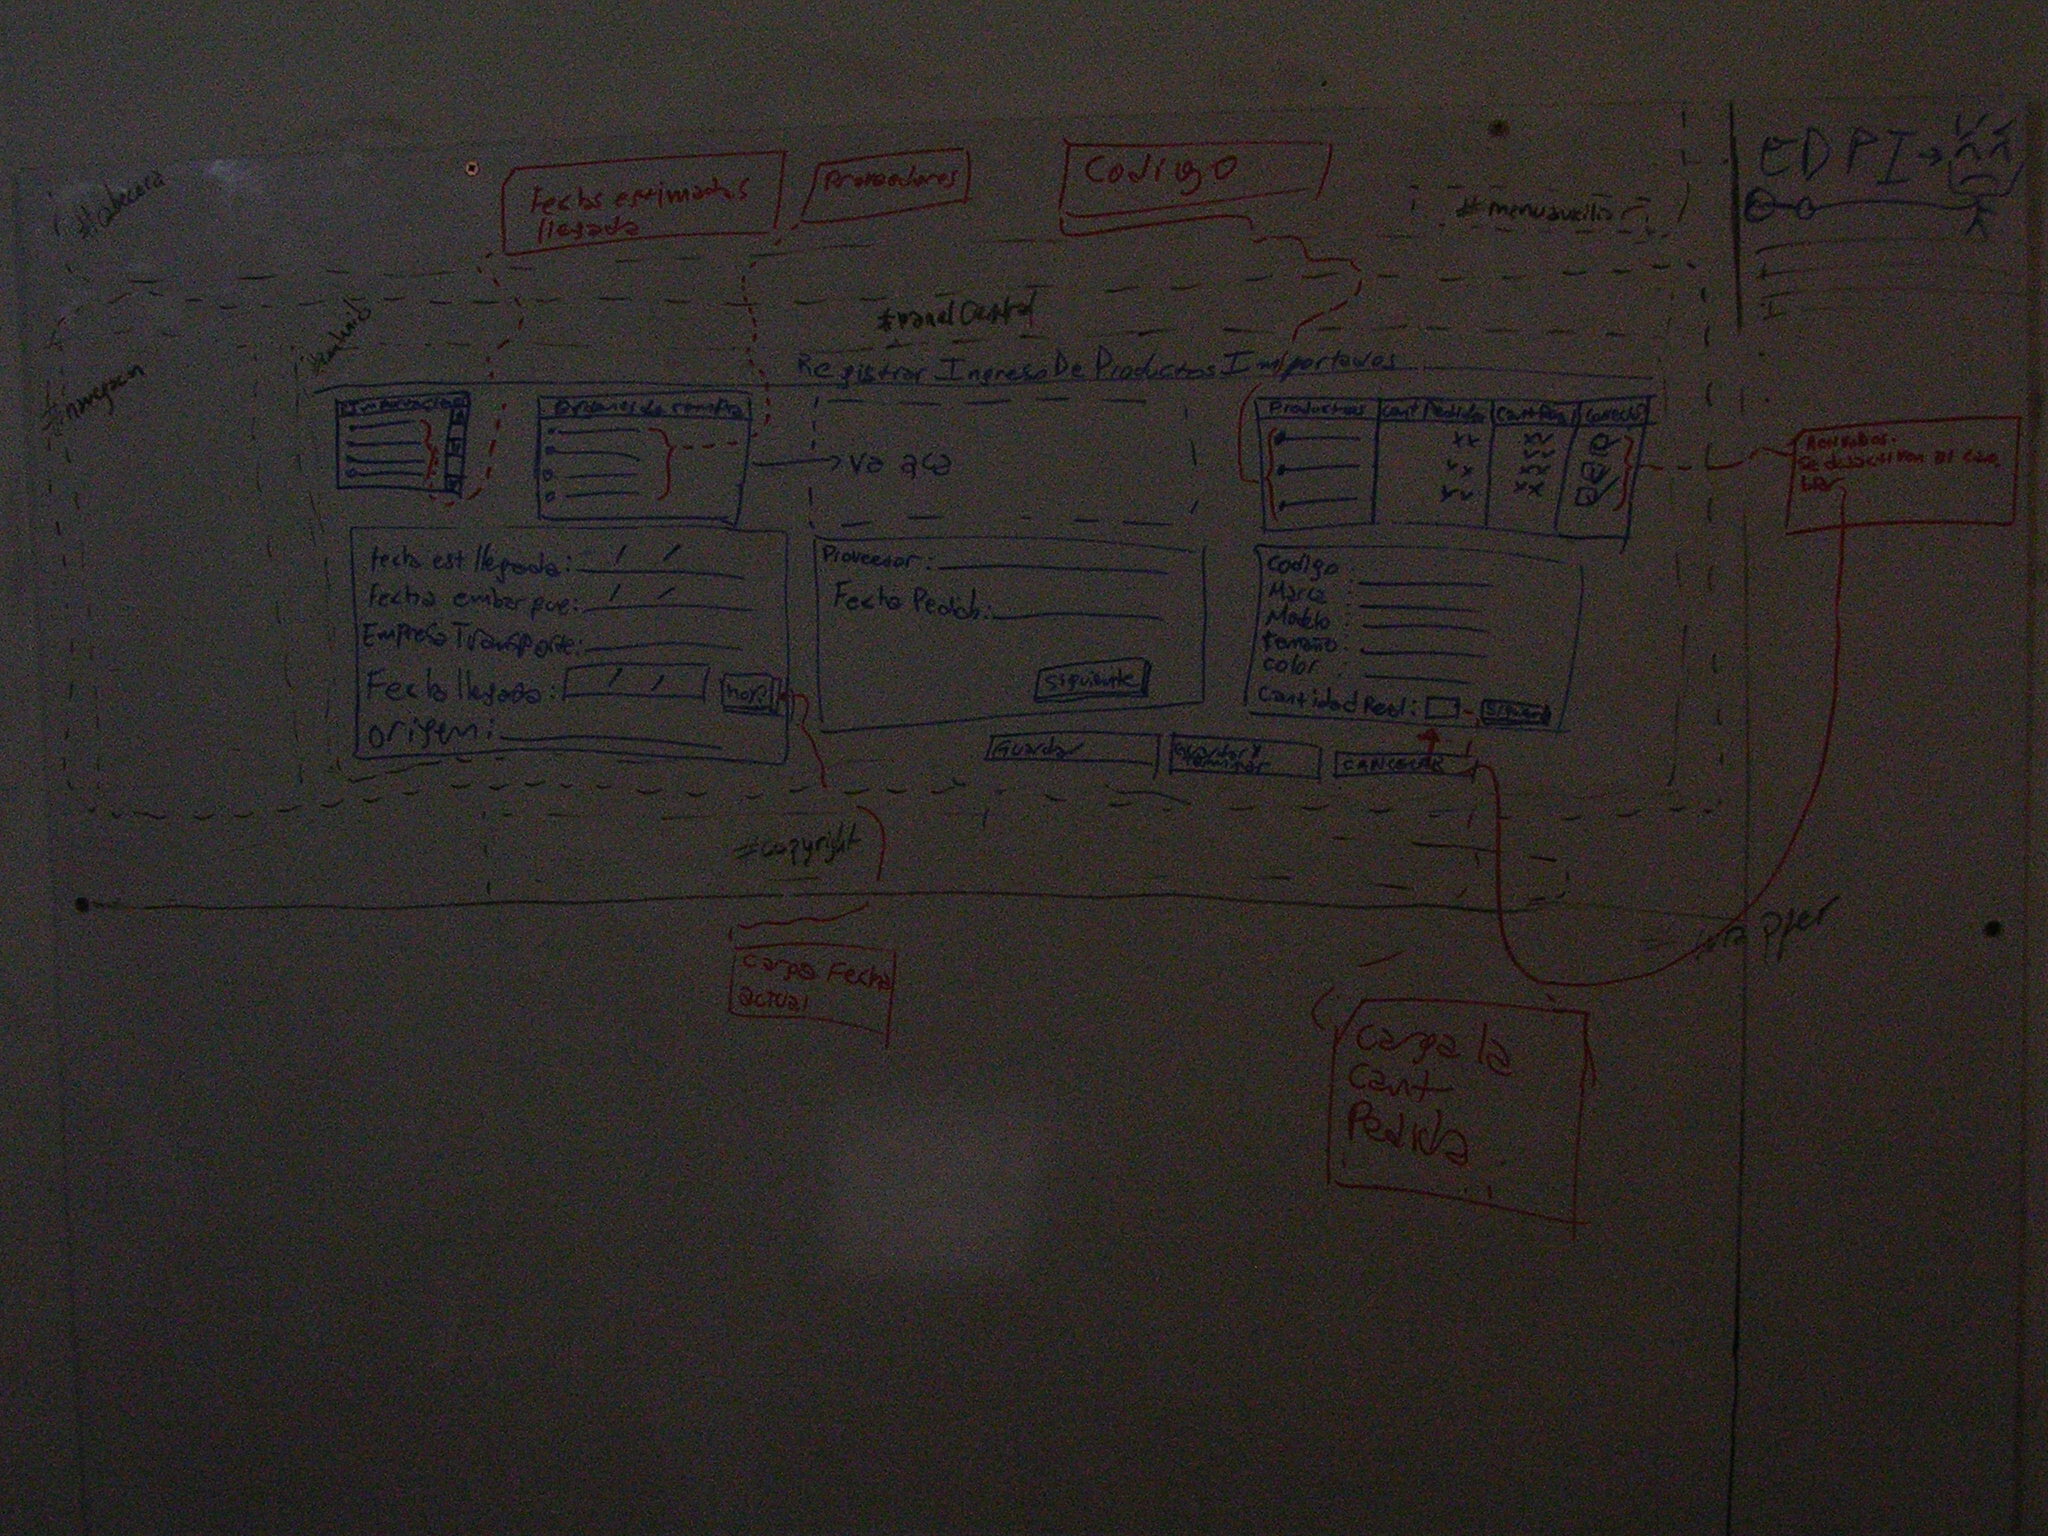 EDPI→
#cabecera
Fechas estimadas
llegada
Proveedores
Codigo
#menuauxiliar
#panelCentral
#navegacion
Registrar Ingreso De Productos Importados
Importacion
Ordenes de compra
va aca
Productos
Cant Pedida
Cant Real
Correcto
xx
xx
xx
Se desactivan al cam
biar
fecha est llegada: / /
fecha embarque: / /
Empresa Transporte:
Fecha llegada: / /
hoy
origen:
Proveedor:
Fecha Pedido:
Siguiente
Codigo:
Marca:
Modelo:
tamaño:
color:
Cantidad Real:
Guardar
Guardar y
terminar
CANCELAR
#copyright
#wrapper
Carga Fecha
actual
Carga la
cant
Pedida